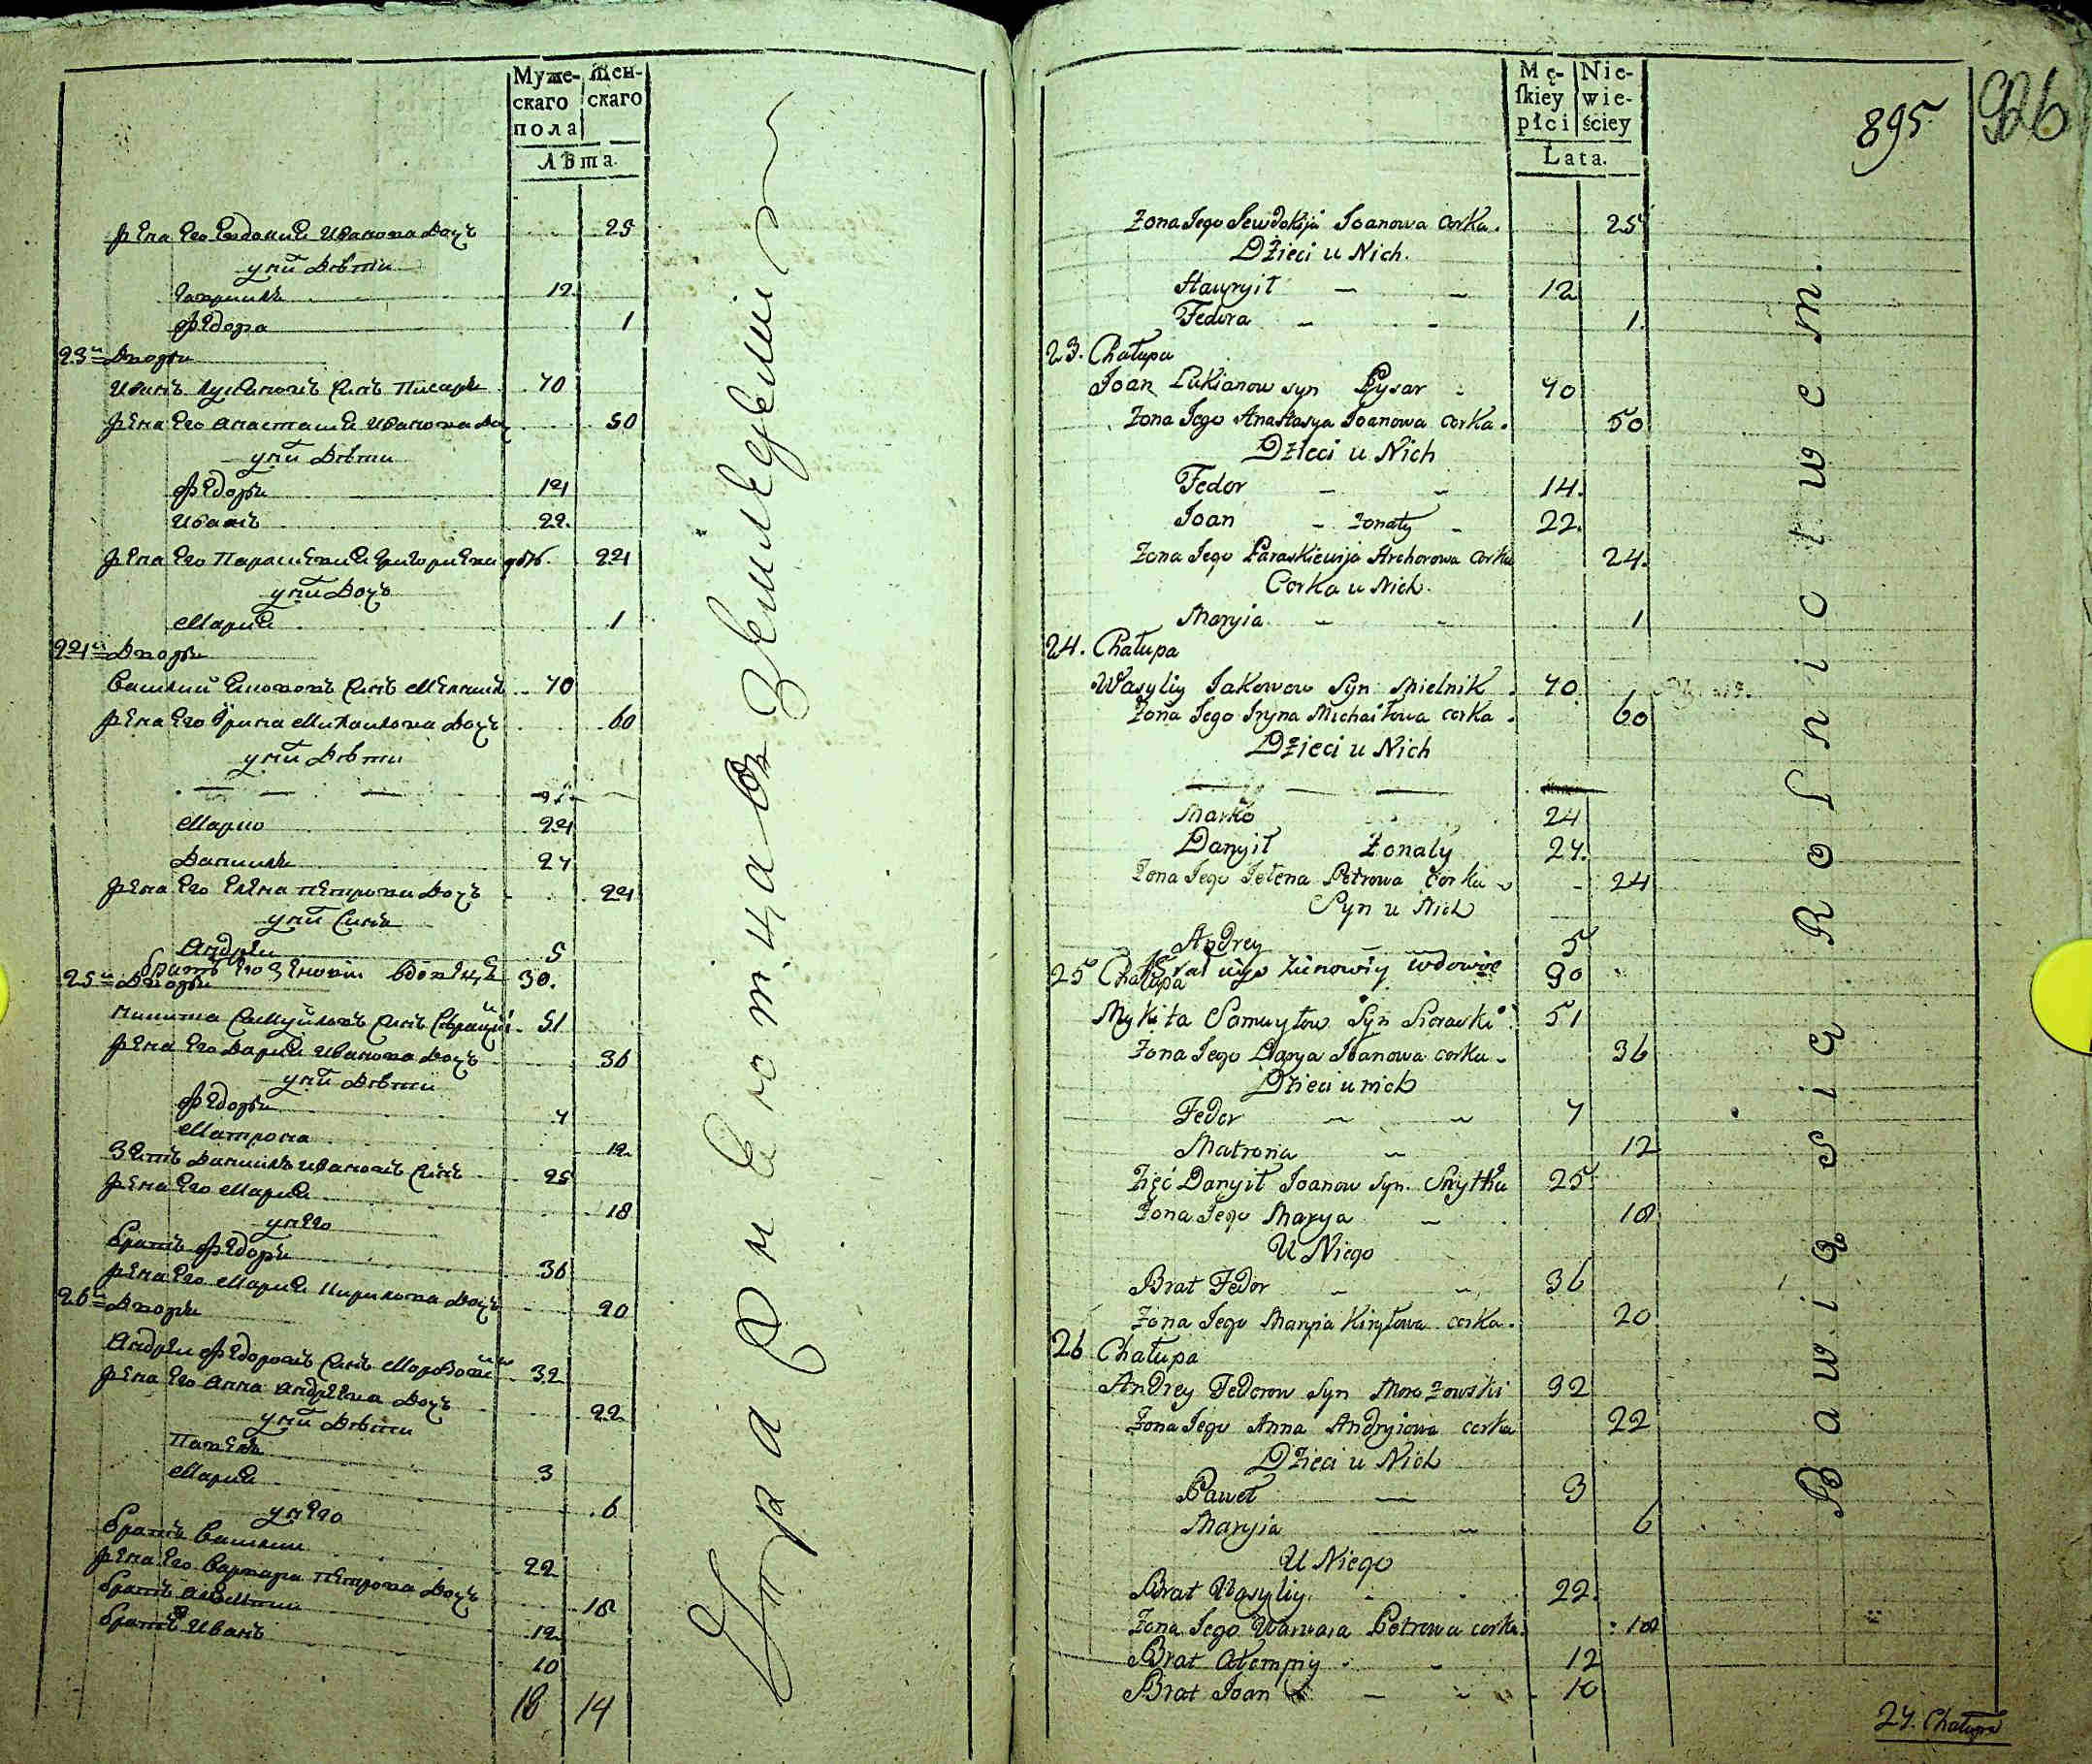 Муже-
скаго
пола
Жен-
скаго
Лѣта.
жена его Евдокия Иванова дочь 25
у них дѣти
Гаврило 12
Федора 1
23й Дворъ
Иванъ Лукяновъ синъ Писаръ 70
жена его Анастасия Иванова доч 50
у них дѣти
Федоръ 14
Иванъ 22.
жена его Параскевия 24
у них дочь
Мария 1
24й Дворъ
Василий Якововъ синъ Мелник 70
жена его Ирина Михаилова дочь 60
у них дѣти
Марко 24
Данило 27
жена его Елена Петрова дочь 24
у них синъ
Андрей 5
братъ его Зеновий вдовецъ 30.
25й Дворъ
Никита Самуйловъ синъ 51
жена его Дария Иванова дочь 36
у них дѣти
Федоръ 7
Матрона 12
Зять Данило Ивановъ синъ 25
жена его Мария 18
у него
братъ Федоръ 36
жена его Мария Кирилова дочь 20
26й Дворъ
Андрей Федоровъ синъ Морозовский 32
жена его Анна Андреева дочь 22
у них дѣти
Павелъ 3
Мария 6
у него
братъ Василий 22
жена его Варвара Петрова дочь 18
братъ 12
братъ Иванъ 10
18 14
Упражняютца въ Земледелии
Mę-
skiey
płci
Nie-
wie-
ściey
Lata.
895
926
Zona Jego Jewdokija Joanowa corka. 25
Dzieci u Nich.
Hawryił 12
Fedora 1.
23. Chałupa
Joan Lukianow syn Pysar 70
Zona Jego Anastasya Joanowa corka. 50
Dzieci u Nich
Fedor 14.
Joan Zonaty 22.
Zona Jego Paraskiewija Arehorowa corka 24.
Corka u Nich.
Maryia 1
24. Chałupa
Wasyliy Jakowow Syn Mielnik 70.
Zona Jego Iryna Michaiłowa corka 60
Dzieci u Nich
Marko 24
Danyił Zonaty 27.
Zona Jego Jełena Petrowa corka 24
Syn u Nich
Andrey 5
Brat iego Zinowiy wdowiec 30
25 Chałupa
Mykita Samuyłow Syn 51
Zona Jego Darya Joanowa corka 36
Dzieci u nich
Fedor 7
Matrona 12
Zięć Danyił Joanow Syn Snytka 25
Zona Jego Marya 18
U Niego
Brat Fedor 36
Zona Jego Maryia Kiryłowa corka. 20
26 Chałupa
Andrey Fedorow Syn Morozowski 32
Zona Jego Anna Andryiowa corka 22
Dzieci u Nich
Paweł 3
Maryia 6
U Niego
Brat Wasyliy 22.
Zona Jego Warwara Petrowa corka. 18
Brat 12
Brat Joan 10
Bawią się Rolnictwem.
27. Chałupa